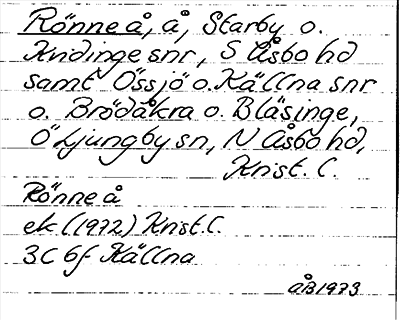 Rönne å, å, Starby o.
Kvidinge snr, S Åsbo hd
samt Össjö o. Källna snr
o. Brödåkra o. Bläsinge,
Ö Ljungby sn, N Åsbo hd,
Krist. l.
Rönne å
ek. (1972) Krist. l.
3C 6f Källna
ÅB 1973